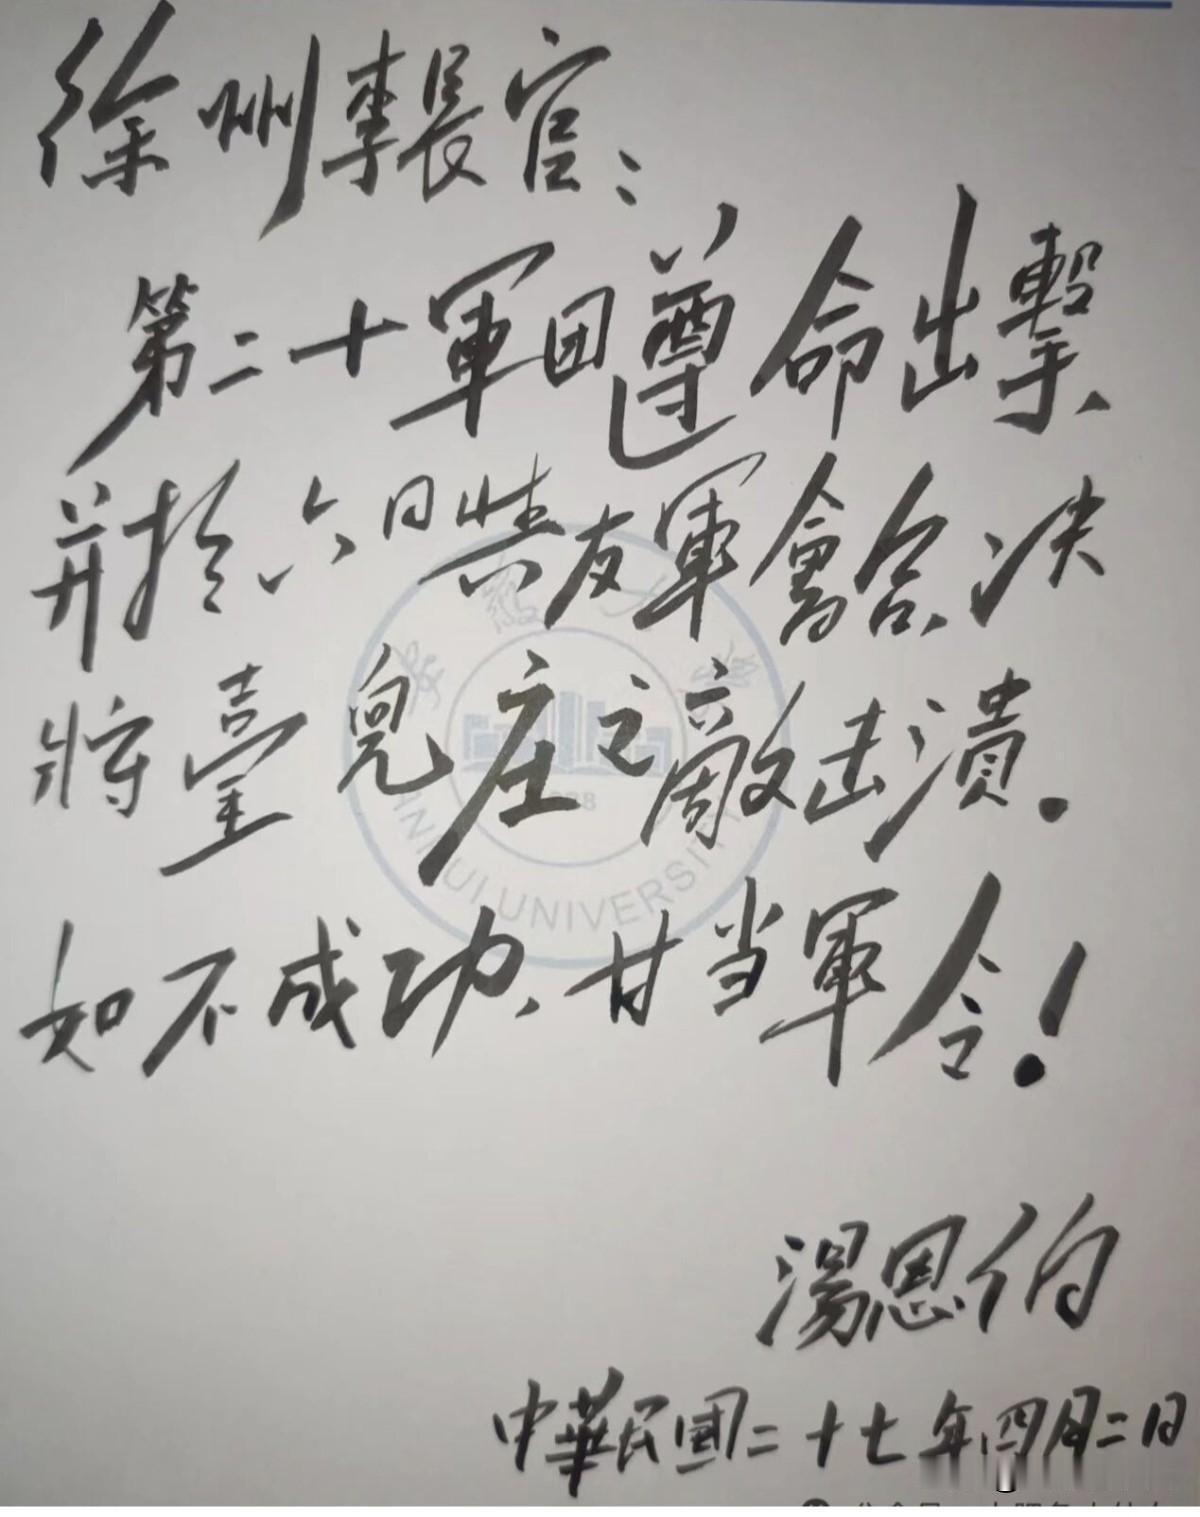 徐州李長官：
第二十軍团遵命出擊、
并於六日與友軍會合、决
將臺兒庄之敵击潰.
如不成功、甘当軍令！
湯恩伯
中華民國二十七年四月二日
安徽大
ANHUI UNIVERSITY